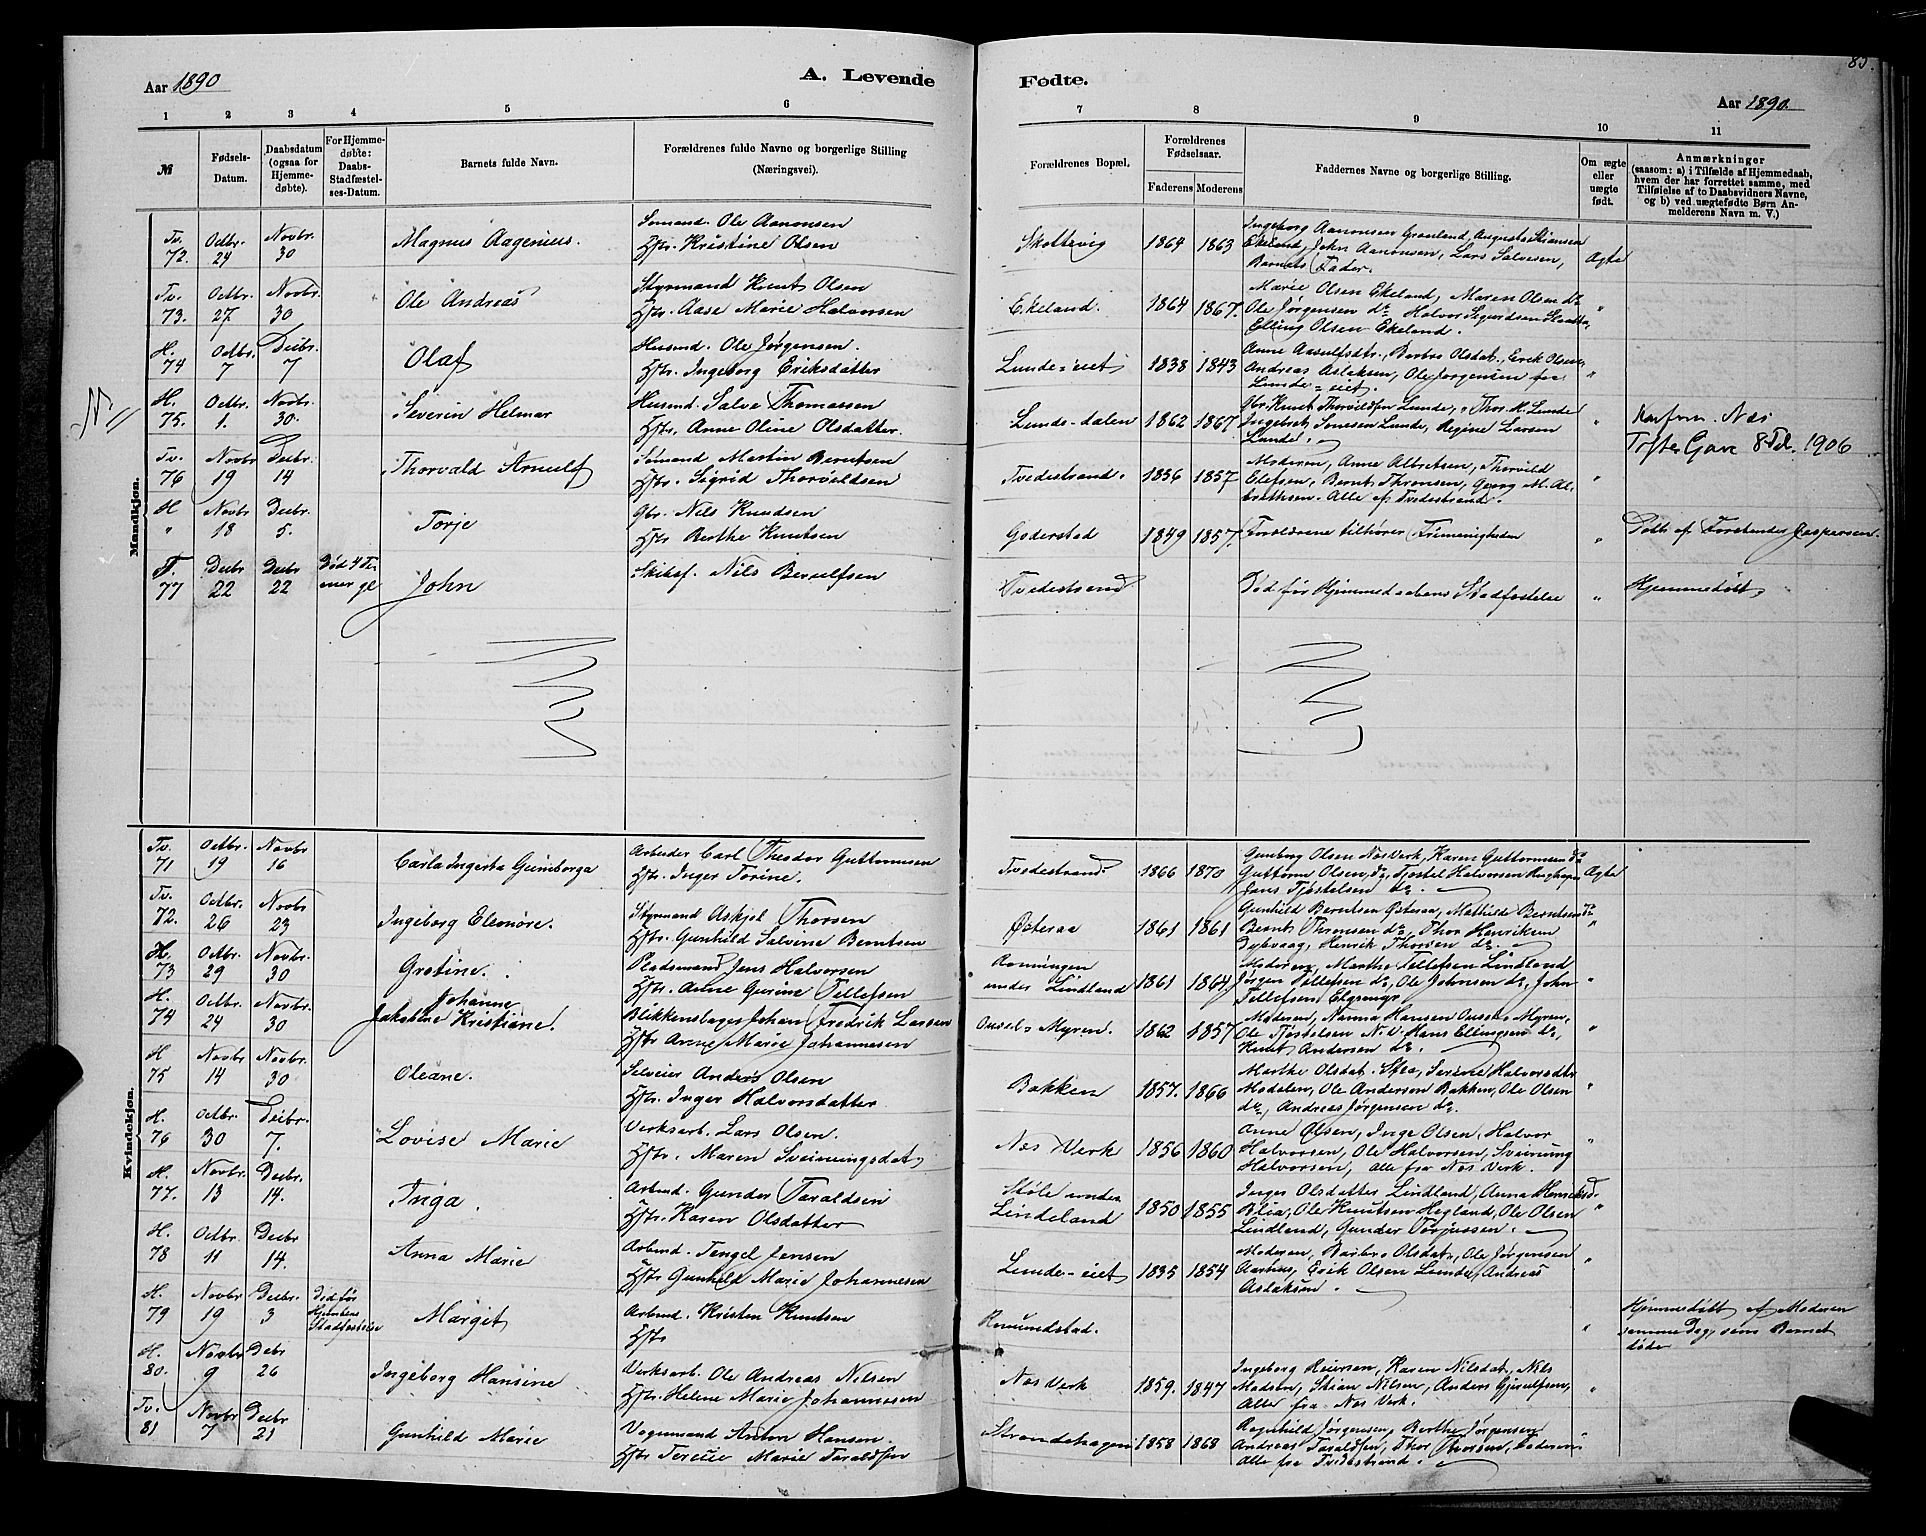 Aar 1890
A. Levende
Fødte.
Aar 1890.
1 2 3 4 5 6
7 8 9 10 11
№
Fødsels-Datum.
Daabsdatum (ogsaa for Hjemmedøbte).
For Hjemmedøbte: Daabs-Stadfæstelses-Datum.
Barnets fulde Navn.
Forældrenes fulde Navne og borgerlige Stilling (Næringsvei).
Forældrenes Bopæl.
Forældrenes Fødselsaar.
Faderens Moderens
Faddernes Navne og borgerlige Stilling.
Om ægte eller uægte født.
Anmærkninger
(saasom: a) i Tilfælde af Hjemmedaab, hvem der har forrettet samme, med Tilføielse af to Daabsvidners Navne, og b) ved uægtefødte Børn Anmelderens Navn m. V.)
Mandkjøn.
Tv. 72. Octbr. 24 Novbr. 30 Magnus Aagenius. Sømand. Ole Aanonsen
Hstr. Kristine Olsen
Skottevig 1864 1863 Ingeborg Aanonsen Grønland, Augusta Stiansen
Ekeland, John Aanonsen, Lars Salvesen,
Barnets Fader. Ægte
Tv. 73. Octbr. 27. Novbr. 30 Ole Andreas Styrmand Knut Olsen
Hstr. Aase Marie Halvorsen
Ekeland. 1864 1867. Marie Olsen Ekeland, Maren Olsen do
Ole Jørgensen do Halvor Sigurdsen
Elling Olsen Ekeland. "
H. 74 Octbr. 7 Decbr. 7 Olaf Husmd. Ole Jørgensen.
Hstr. Ingeborg Eriksdatter
Lunde-eiet 1838 1843 Anne Aasulfsdtr., Barbro Olsdat., Erik Olsen,
Andreas Aslaksen, Ole Jørgensen fra
Lunde-eiet. "
H. 75. Octbr. 1. Novbr. 30. Severin Helmar Husmd. Salve Thomassen
Hstr. Anne Oline Olsdatter.
Lunde-dalen 1862 1867 Gbr. Knut Thorvildsen Lunde, Thor K. Lunde
Ingebret Jonsen Lunde, Regine Larsen
Lunde. " Konfirm. Næs
Tofte Gave 8 Feb. 1906
Tv. 76 Novbr 19 Decbr. 14 Thorvald Arnulf Sømand Martin Berntsen
Hstr. Sigrid Thorvildsen
Tvedestrand. 1856 1857 Moderen, Anne Albretsen, Thorvild
Elefsen, Bernt Thronsen, Georg M. Al-
brethsen. Alle af Tvedestrand. "
H " Novbr 18 Decbr. 5. Torje Gbr. Nils Knudsen
Hstr. Berthe Knutsen
Goderstad 1849 1857. Forældrene tilhører Frimenigheden " Døbt af Forstander Jespersen.
T. 77 Decbr 22 Decbr 22 Død 4 Ti-
mer gl John Skibsf. Nils Berulfsen
Tvedestrand Død før Hjemmedaabens Stadfæstelse " Hjemmedøbt
Kvindekjøn.
Tv. 71 Octbr. 19 Novbr 16 Carla Ingerta Gunborga Arbeider Carl Theodor Guttormsen
Hstr. Inger Torine.
Tvedestrand. 1866 1870 Gunborg Olsen Næs Verk, Karen Guttormsen do
Guttorm Olsen, do, Tjøstel Halvorsen
Jens Tjøstelsen do. Ægte
Tv. 72. Octbr. 26 Novbr 23 Ingeborg Eleonore. Styrmand Askjel Thorsen
Hstr. Gunhild Salvine Berntsen
Østeraa 1861 1861 Gunhild Berntsen Østeraa, Mathilde Berntsen do
Bernt Thronsen do, Thor Henriksen
Dybvaag, Henrik Thorsen do. "
H. 73 Octbr. 29 Novbr. 30 Gretine. Pladsmand Jens Halvorsen
Hstr. Anne Gurine Tellefsen
Rønningen
under Lindland 1861 1864. Moderen, Marthe Tellefsen Lindland
Jørgen Tellefsen do, Ole Johnsen do, John
Tellefsen "
H. 74 Octbr. 24 Novbr. 30 Johanne
Jakobine Kristiane. Blikkenslager Johan Fredrik Larsen
Hstr Anne Marie Johannesen
Oussels Myren. 1862 1857 Moderen, Nanna Hansen Oussels Myren,
Ole Tjøstelsen N. V. Hans Ellingsen do,
Knut Andersen do. "
H 75 Novbr 14 Novbr. 30 Oleane. Selveier Anders Olsen
Hstr. Inger Halvorsdatter
Bakken 1857. 1866 Marthe Olsdat. Stea, Serine Halvorsdtr
Modalen, Ole Andersen Bakken, Ole Olsen
do, Andreas Jørgensen do. "
H. 76 Octbr. 30 Decbr. 7. Lovise Marie Verksarb. Lars Olsen.
Hstr. Maren Sveinungsdat.
Næs Verk 1856 1860 Anne Olsen, Inge Olsen, Halvor
Halvorsen, Ole Halvorsen, Sveinung
Halvorsen, alle fra Næs Verk. "
H. 77. Novbr. 13 Decbr. 14. Inga. Arbmd. Gunder Taraldsen
Hstr. Karen Olsdatter
Støle under
Lindeland 1850 1855 Inger Olsdatter Lindland, Anna Henriksd.
Blia, Ole Knutsen Hegland, Ole Olsen
Lindland, Gunder Torjussen. "
H. 78 Octbr. 11 Decbr 14. Anna Marie Arbmd. Tengel Jensen
Hstr Gunhild Marie Johannesen
Lunde-eiet 1835 1854 Moderen, Barbro Olsdat., Ole Jørgensen
Aarhus, Erik Olsen Lunde, Andreas
Aslaksen. "
H. 79 Novbr 19 Decbr. 3 Død før
Stadfæstelse Margit Arbmd. Kristen Knutsen
Hstr
Rømundstad. " Hjemmedøbt af Moderen
samme Dag, som Barnet
døde
H. 80. Novbr 9 Decbr 26 Ingeborg Hansine Verksarb. Ole Andreas Nilsen
Hstr. Helene Marie Johannesen
Næs Verk 1859. 1847 Ingeborg Reiersen, Karen Nilsdat., Nils
Madsen, Stian Nilsen, Anders Gjerulfsen,
Alle fra Næs Verk. "
Tv. 81 Novbr 7 Decbr 21 Gunhild Marie Vognmand Anton Hansen.
Hstr Terese Marie Taraldsen
Strandehagen 1858 1868 Ragnhild Jørgensen, Berthe Jørgensen
Andreas Taraldsen, Thor Thorsen, Faderen
Alle fra Tvedestrand. "